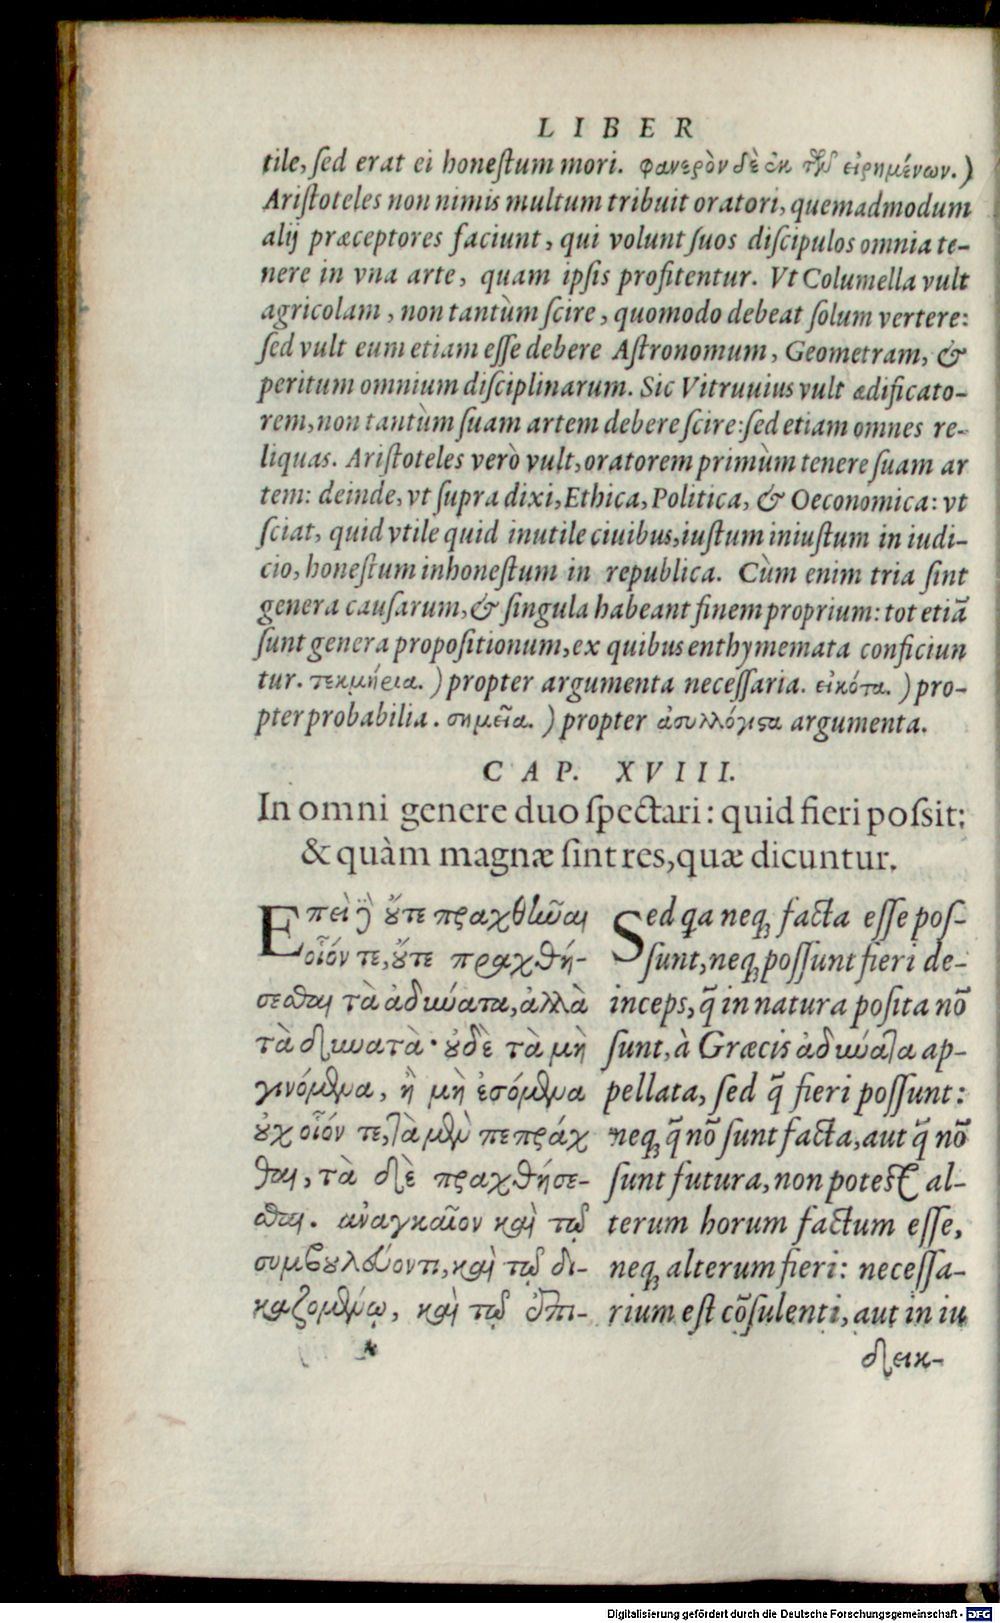 LIBER
tile, ſed erat ei honeſtum mori. φανερὸν δὲ ἐκ τῶν εἰρημένων.)
Ariſtoteles non nimis multum tribuit oratori, quemadmodum
alij præceptores faciunt, qui volunt ſuos diſcipulos omnia te-
nere in vna arte, quam ipſis profitentur. Vt Columella vult
agricolam, non tantùm ſcire, quomodo debeat ſolum vertere:
ſed vult eum etiam eſſe debere Aſtronomum, Geometram, &
peritum omnium diſciplinarum. Sic Vitruuius vult ædificato-
rem, non tantùm ſuam artem debere ſcire: ſed etiam omnes re-
liquas. Ariſtoteles verò vult, oratorem primùm tenere ſuam ar
tem: deinde, vt ſupra dixi, Ethica, Politica, & Oeconomica: vt
ſciat, quid vtile quid inutile ciuibus, iuſtum iniuſtum in iudi-
cio, honeſtum inhoneſtum in republica. Cùm enim tria ſint
genera cauſarum, & ſingula habeant finem proprium: tot etiã
ſunt genera propoſitionum, ex quibus enthymemata conficiun
tur. τεκμήρια.) propter argumenta neceſſaria. εἰκότα.) pro-
pter probabilia. σημεῖα.) propter ἀσυλλόγιϛα argumenta.
CAP. XVIII.
In omni genere duo ſpectari: quid fieri poſsit:
& quàm magnæ ſint res, quæ dicuntur.
Επεὶ ὃ ȣ̓́τε πραχθῆναι
οἷόν τε, ȣ̓́τε πραχθή-
σεσθαι τὰ ἀδύνατα, ἀλλὰ
τὰ δυνατὰ· ȣ̓δὲ τὰ μὴ
γινόμενα, ἢ μὴ ἐσόμενα
ȣ̓χ οἷόν τε, τὰ μὲν πεπράχ
θαι, τὰ δὲ πραχθήσε-
σθαι. αναγκαῖον καὶ τῷ
συμβȣλεύοντι, καὶ τῷ δι-
καζομένῳ, καὶ τῷ ἐπι-
Sed qa neq; facta eſſe poſ-
ſunt, neq; poſſunt fieri de-
inceps, q̃ in natura poſita nõ
ſunt, à Græcis ἀδύνατα ap-
pellata, ſed q̃ fieri poſſunt:
neq; q̃ nõ ſunt facta, aut q̃ nõ
ſunt futura, non poteſt al-
terum horum factum eſſe,
neq; alterum fieri: neceſſa-
rium eſt cõſulenti, aut in iu
δεικ-
Digitalisierung gefördert durch die Deutsche Forschungsgemeinschaft - DFG